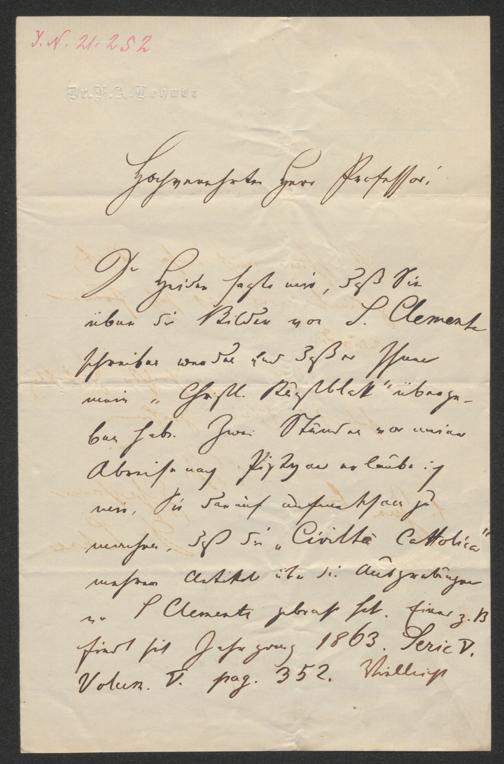 J. N. 21.252
Hochverehrter Herr Professor!
Dr Heider sagte mir, daß Sie
über die Bilder von S. Clemente
schreiben werden und daß er Ihnen
mein „Christl. Kunstblatt" überge-
ben habe. Zwei Stunden vor meiner
Abreise nach erlaube ich
mir, Sie darauf aufmerksam zu
machen, daß die „Civiltà Cattolica"
mehrere Artikel über die Ausgrabungen
in S Clemente gebracht hat. Einer z. B
findet sich Jahrgang 1863. Serie V.
Volum. V. pag. 352. Vielleicht